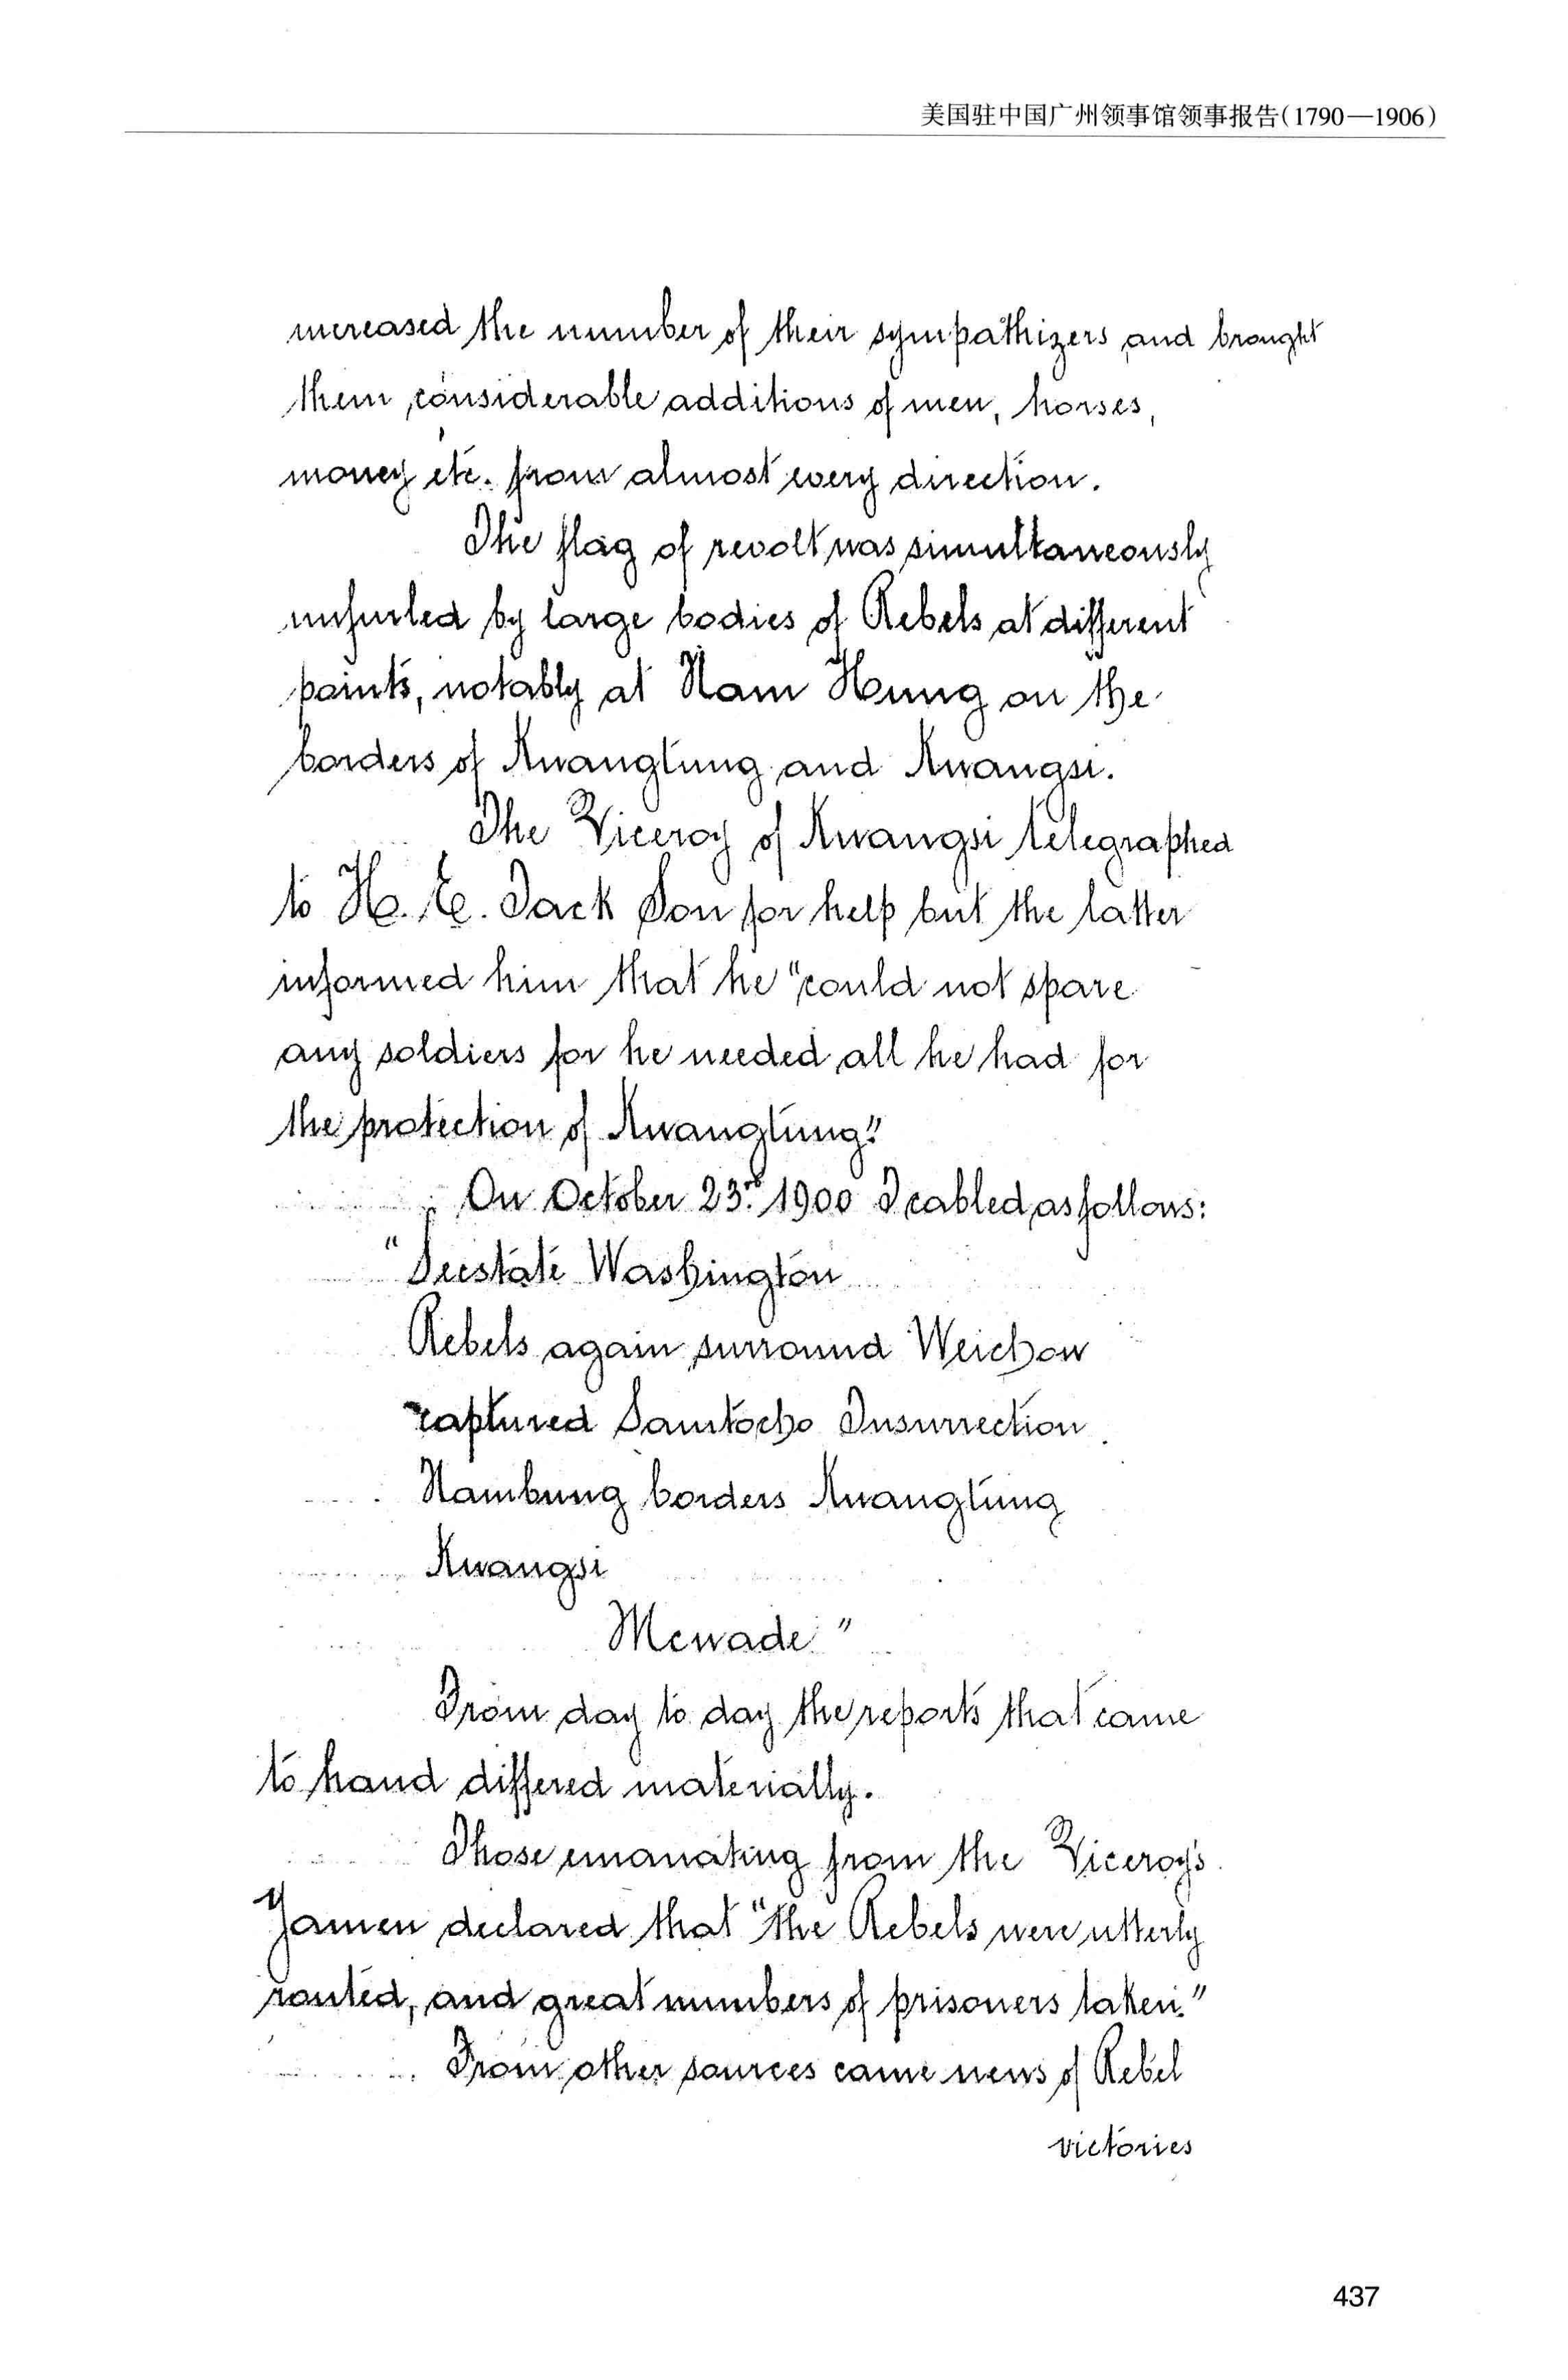 美国驻中国广州领事馆领事报告(1790—1906)
increased the number of their sympathizers and brought
them considerable additions of men, horses,
money etc. from almost every direction.
The flag of revolt was simultaneously
unfurled by large bodies of Rebels at different
points, notably at Nam Hung on the
borders of Kwangtung and Kwangsi.
The Viceroy of Kwangsi telegraphed
to H. E. Tack Sou for help but the latter
informed him that he "could not spare
any soldiers for he needed all he had for
the protection of Kwangtung."
On October 23rd 1900 I cabled as follows:
"Secstate Washington
Rebels again surround Weichow
captured Samtocho Insurrection
Namhung borders Kwangtung
Kwangsi
McWade"
From day to day the reports that came
to hand differed materially.
Those emanating from the Viceroy's
Yamen declared that "the Rebels were utterly
routed, and great numbers of prisoners taken."
From other sources came news of Rebel
victories
437